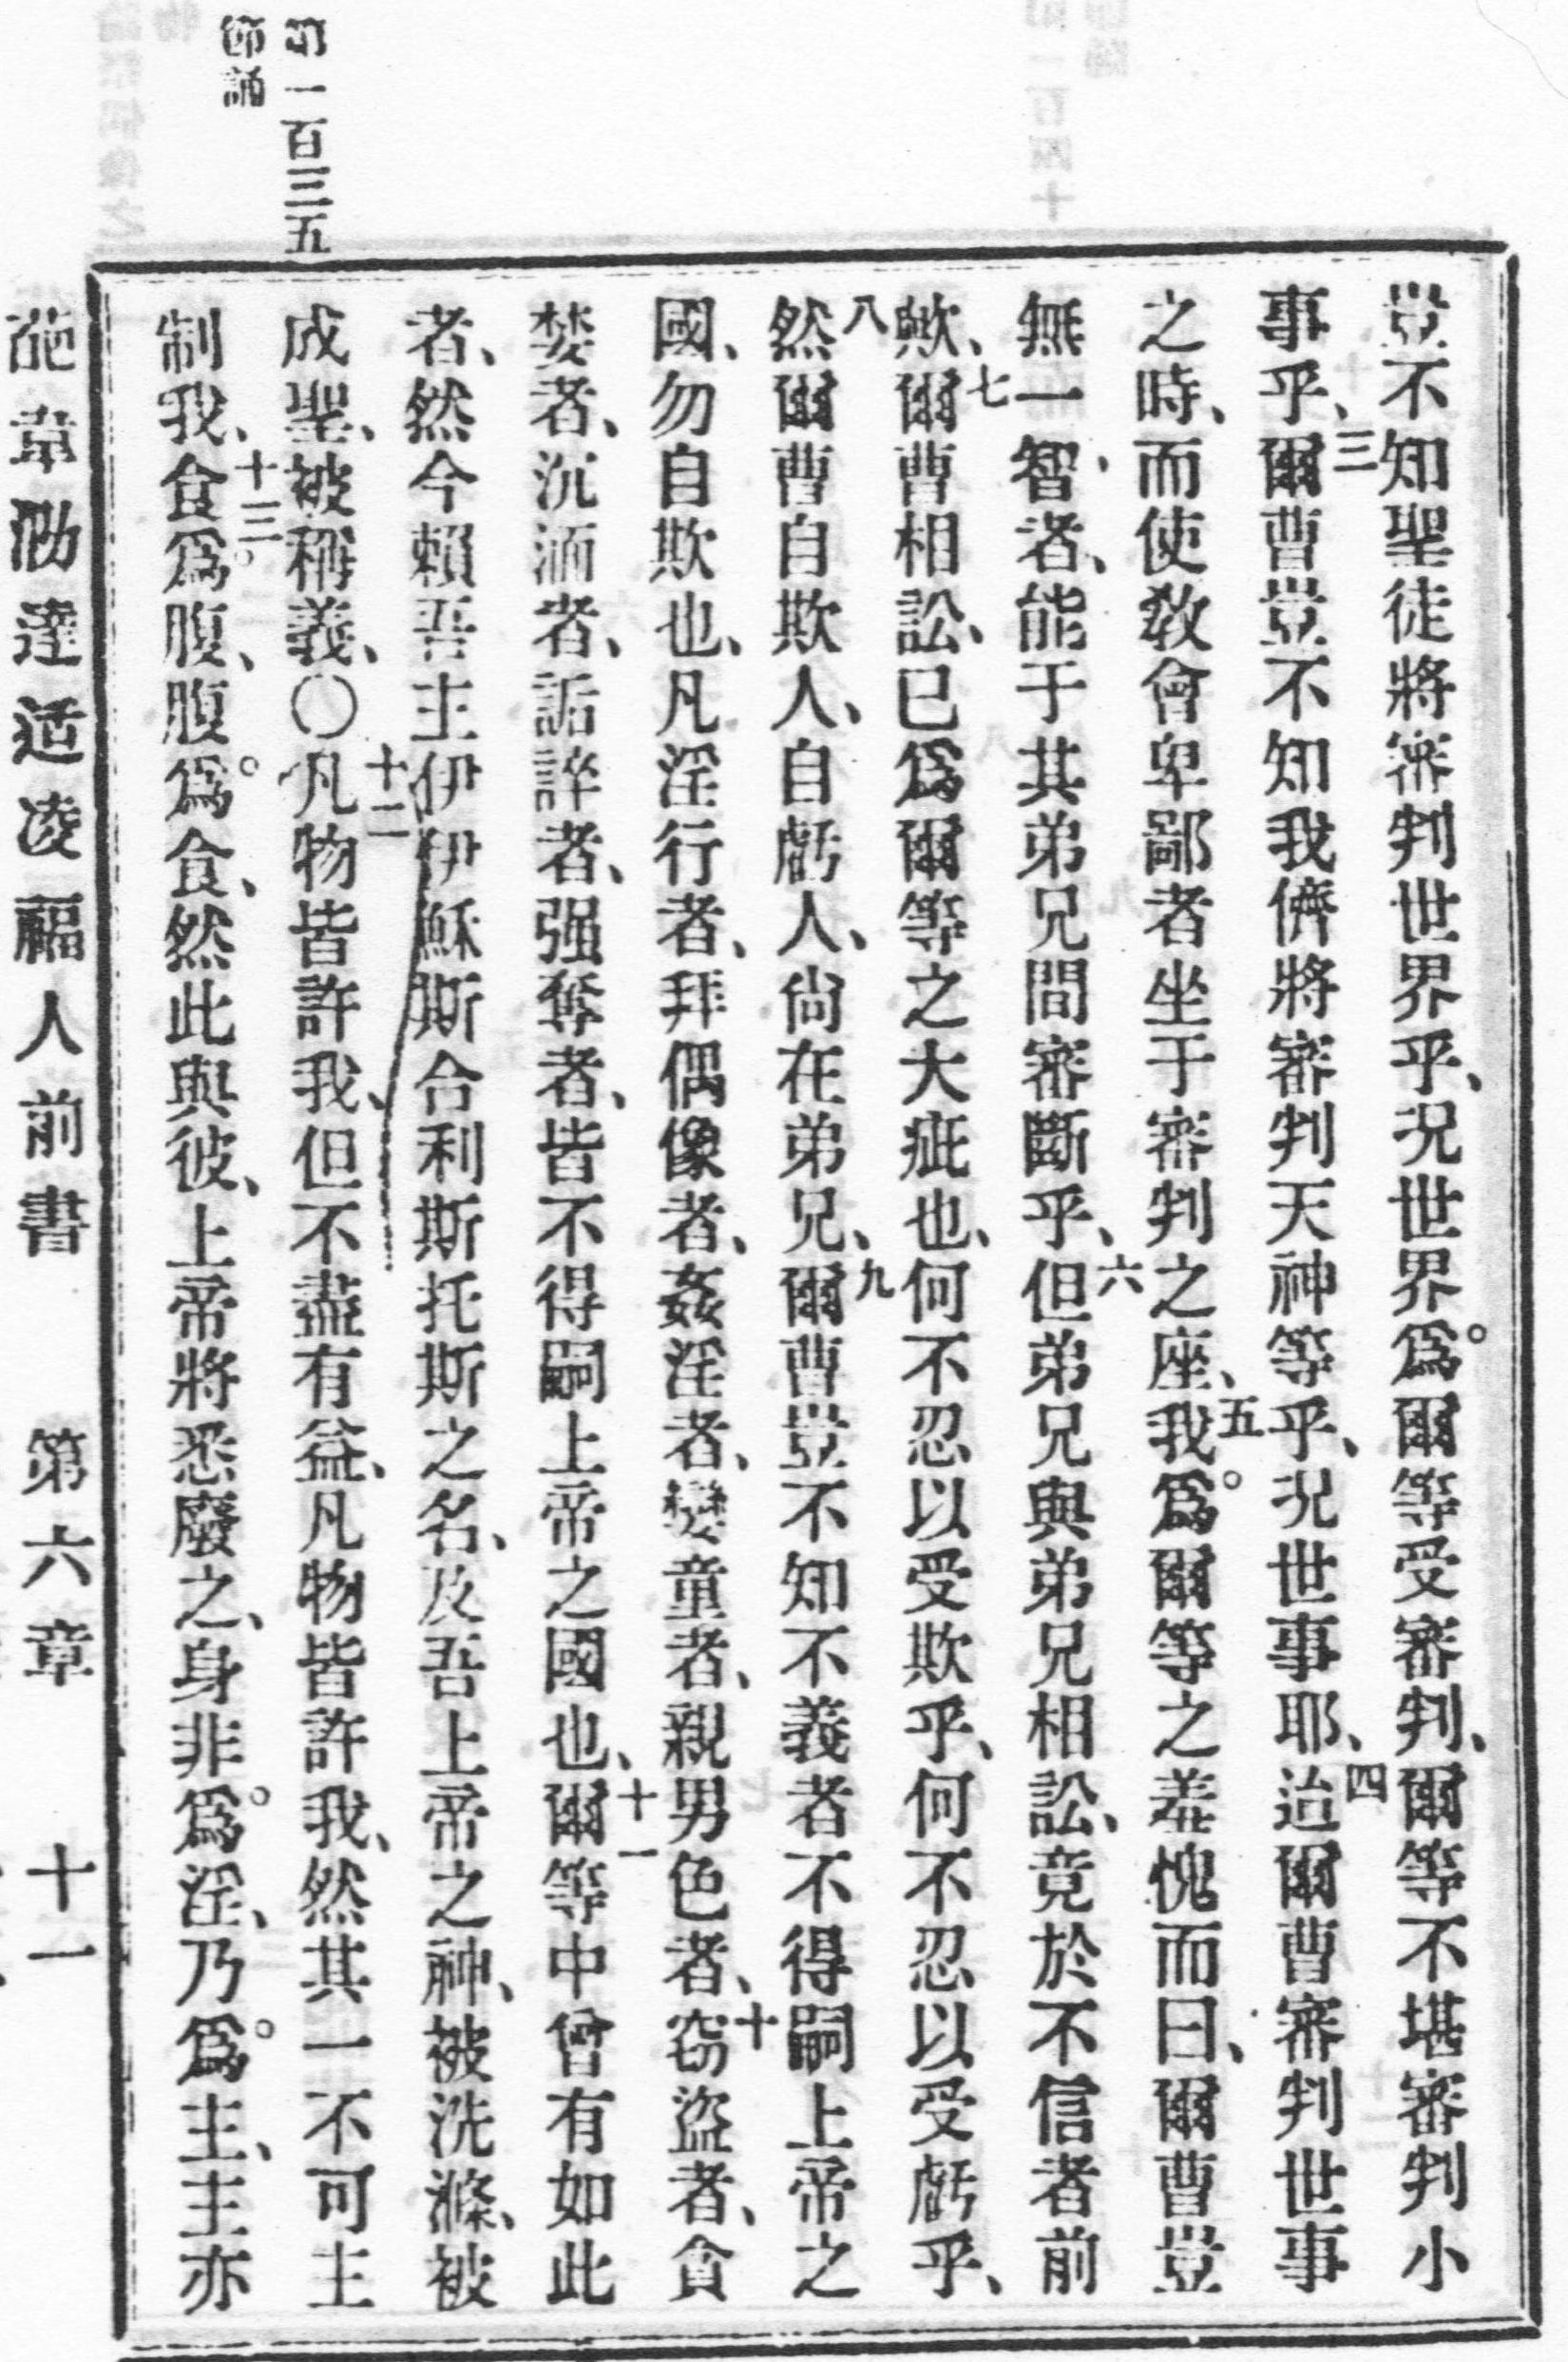 豈不知聖徒將審判世界乎、况世界爲。爾等受審判、爾等不堪審判小
事乎、三爾曹豈不知我儕將審判天神等乎、况世事耶、四迨爾曹審判世事
之時、而使教會卑鄙者坐于審判之座、五我爲。爾等之羞愧而曰、爾曹豈
無一智者、能于其弟兄間審斷乎、六但弟兄與弟兄相訟、竟於不信者前
歟、七爾曹相訟、已爲爾等之大疵也、何不忍以受欺乎、何不忍以受虧乎、
八然爾曹自欺人、自虧人、尙在弟兄、九爾曹豈不知不義者不得嗣上帝之
國、勿自欺也、凡淫行者、拜偶像者、姦淫者、孌童者、親男色者、十窃盜者、貪
婪者、沉湎者、詬誶者、强奪者、皆不得嗣上帝之國也、十一爾等中曾有如此
者、然今賴吾主伊伊穌斯合利斯托斯之名、及吾上帝之神、被洗滌、被
成聖、被稱義、〇十二凡物皆許我、但不盡有益、凡物皆許我、然其一不可主
制我、十三食爲。腹、腹爲。食、然此與彼、上帝將悉廢之、身非爲。淫、乃爲。主、主亦
第一百三五
節誦
適凌福人前書 第六章 十一